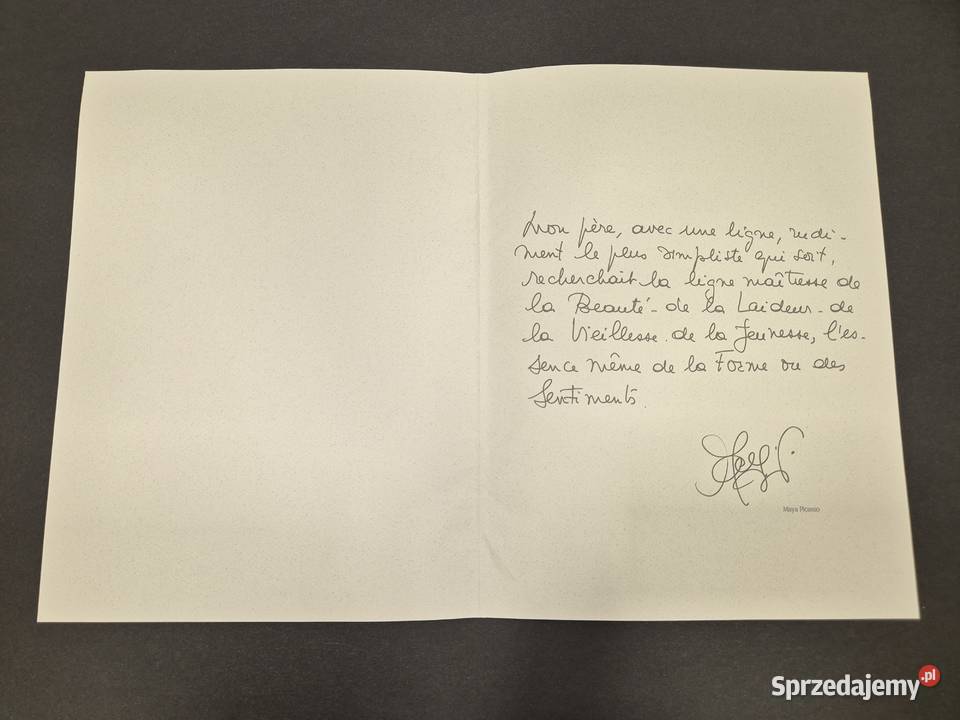 Mon père, avec une ligne, rudi-
ment le plus simpliste qui soit,
recherchait la ligne maîtresse de
la Beauté - de la Laideur - de
la Vieillesse. de la Jeunesse, l'es-
sence même de la Forme ou des
Sentiments.
Maya Picasso
Sprzedajemy.pl